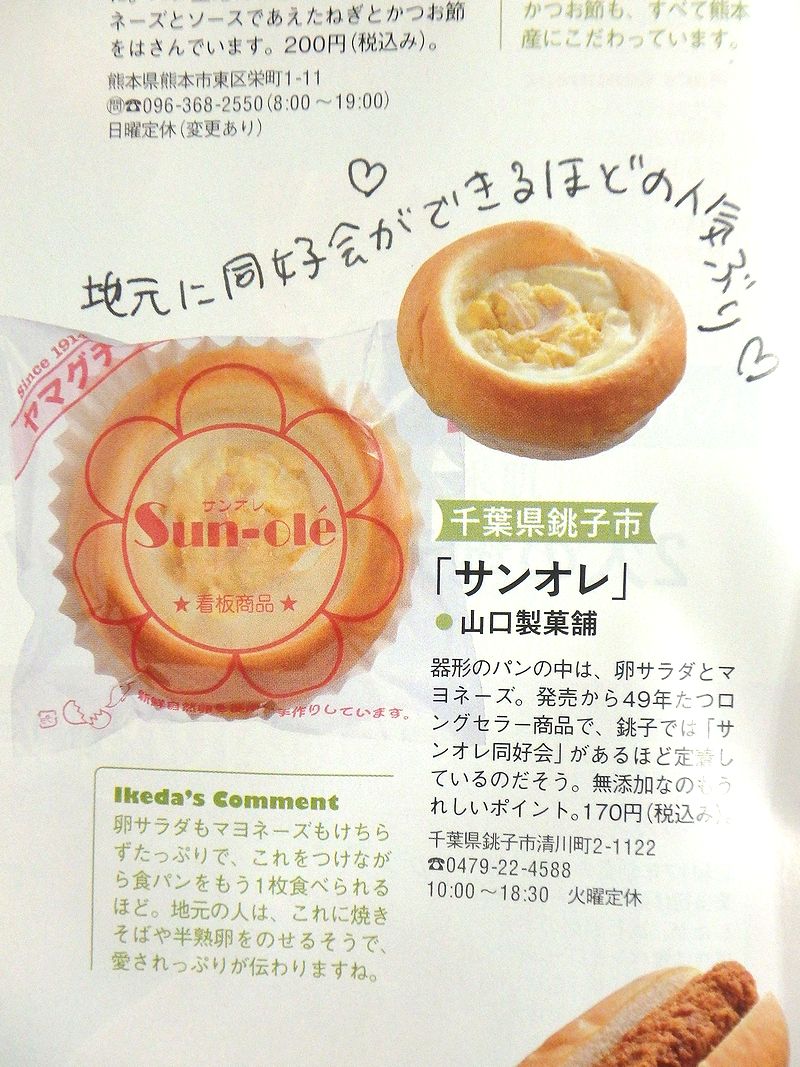 ネーズとソースであえたねぎとかつお節
をはさんでいます。200円(税込み)。
熊本県熊本市東区栄町1-11
㉄☎096-368-2550(8:00～19:00)
日曜定休(変更あり)
かつお節も、すべて熊本
産にこだわっています。
地元に同好会ができるほどの人気ぶり
since 1914
ヤマグチ
サンオレ
Sun-olé
★看板商品★
手作りしています。
千葉県銚子市
「サンオレ」
●山口製菓舗
器形のパンの中は、卵サラダとマ
ヨネーズ。発売から49年たつロ
ングセラー商品で、銚子では「サ
ンオレ同好会」があるほど定着し
ているのだそう。無添加なのもう
れしいポイント。170円(税込み)。
千葉県銚子市清川町2-1122
☎0479-22-4588
10:00～18:30 火曜定休
Ikeda's Comment
卵サラダもマヨネーズもけちら
ずたっぷりで、これをつけなが
ら食パンをもう1枚食べられる
ほど。地元の人は、これに焼き
そばや半熟卵をのせるそうで、
愛されっぷりが伝わりますね。